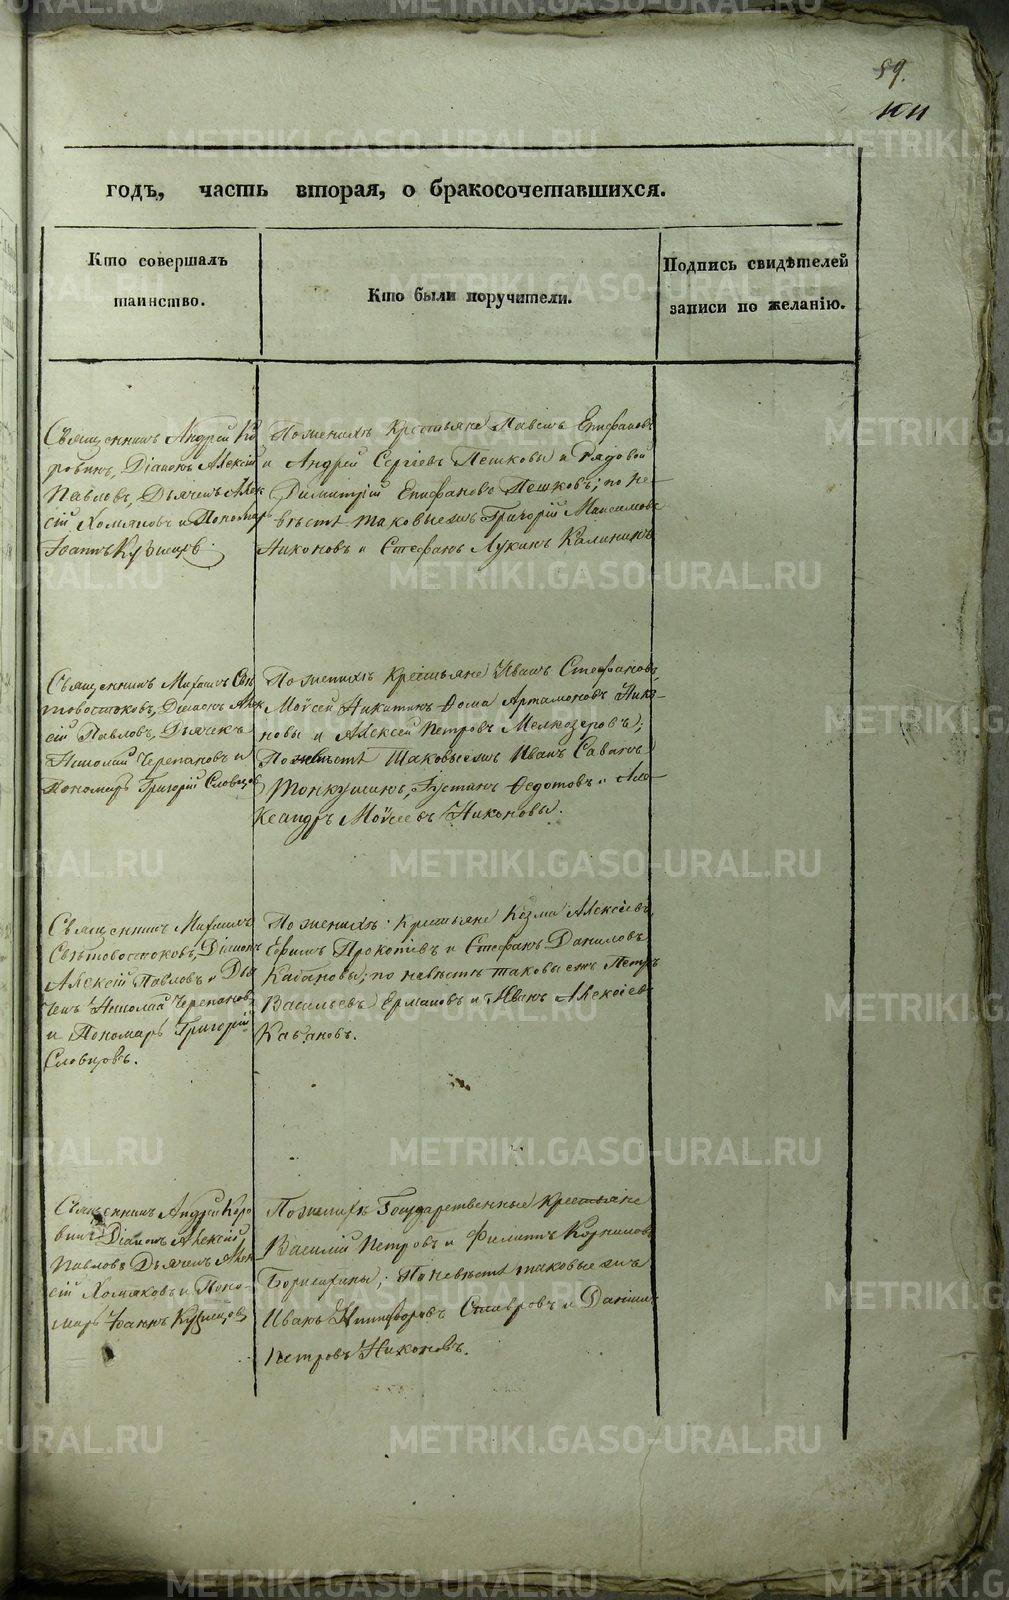 59.
годъ, часть вторая, о бракосочетавшихся.
Кто совершалъ
таинство.
Кто были поручители.
Подпись свидѣтелей
записи по желанію.
Священникъ Андрей Ко
ровинъ, Діаконъ Алексій
Павловъ, Дьячекъ Алек
сій Хомяковъ и Пономарь
Іоаннъ Кузнецовъ.
По женихѣ Крестьяне Павелъ Епифановъ
и Андрей Сергіевъ Пешковы и рядовой
Димитрій Епифановъ Пешковъ; по не-
вѣстѣ таковые жъ Григорій Максимовъ
Никоновъ и Стефанъ Лукинъ Калининъ
Священникъ Михаилъ Свѣ
товостоковъ, Діаконъ Алек
сій Павловъ, Дьячекъ
Николай Черепановъ и
Пономарь Григорій Словцовъ
По женихѣ Крестьяне Иванъ Стефановъ,
Мойсей Никитинъ Ѳома Артамоновъ Нико-
новы и Алексей Петровъ Мелкозеровъ;
По невѣстѣ таковые жъ Иванъ Савинъ
Тонкушинъ, Іустинъ Ѳедотовъ и Але
ксандръ Мойсеевъ Никоновы.
Священникъ Михаилъ
Свѣтовостоковъ, Діаконъ
Алексій Павловъ и Дья
чекъ Николай Черепановъ
и Пономарь Григорій
Словцовъ.
По женихѣ Крестьяне Козма Алексѣевъ,
Ефимъ Прокопіевъ и Стефанъ Даниловъ
Кабановы; по невѣстѣ таковые жъ Петръ
Васильевъ Ермаковъ и Иванъ Алексѣевъ
Кабановъ.
Священникъ Андрей Коро
винъ Діаконъ Алексій
Павловъ Дьячекъ Алек
сій Хомяковъ и Поно-
марь Іоаннъ Кузнецовъ
По женихѣ Государственные крестьяне
Василій Петровъ и Филиппъ Корниловъ
Борисихины; По невѣстѣ таковые жъ
Иванъ Никифоровъ Ставровъ и Даніилъ
Петровъ Никоновъ.
METRIKI.GASO-URAL.RU